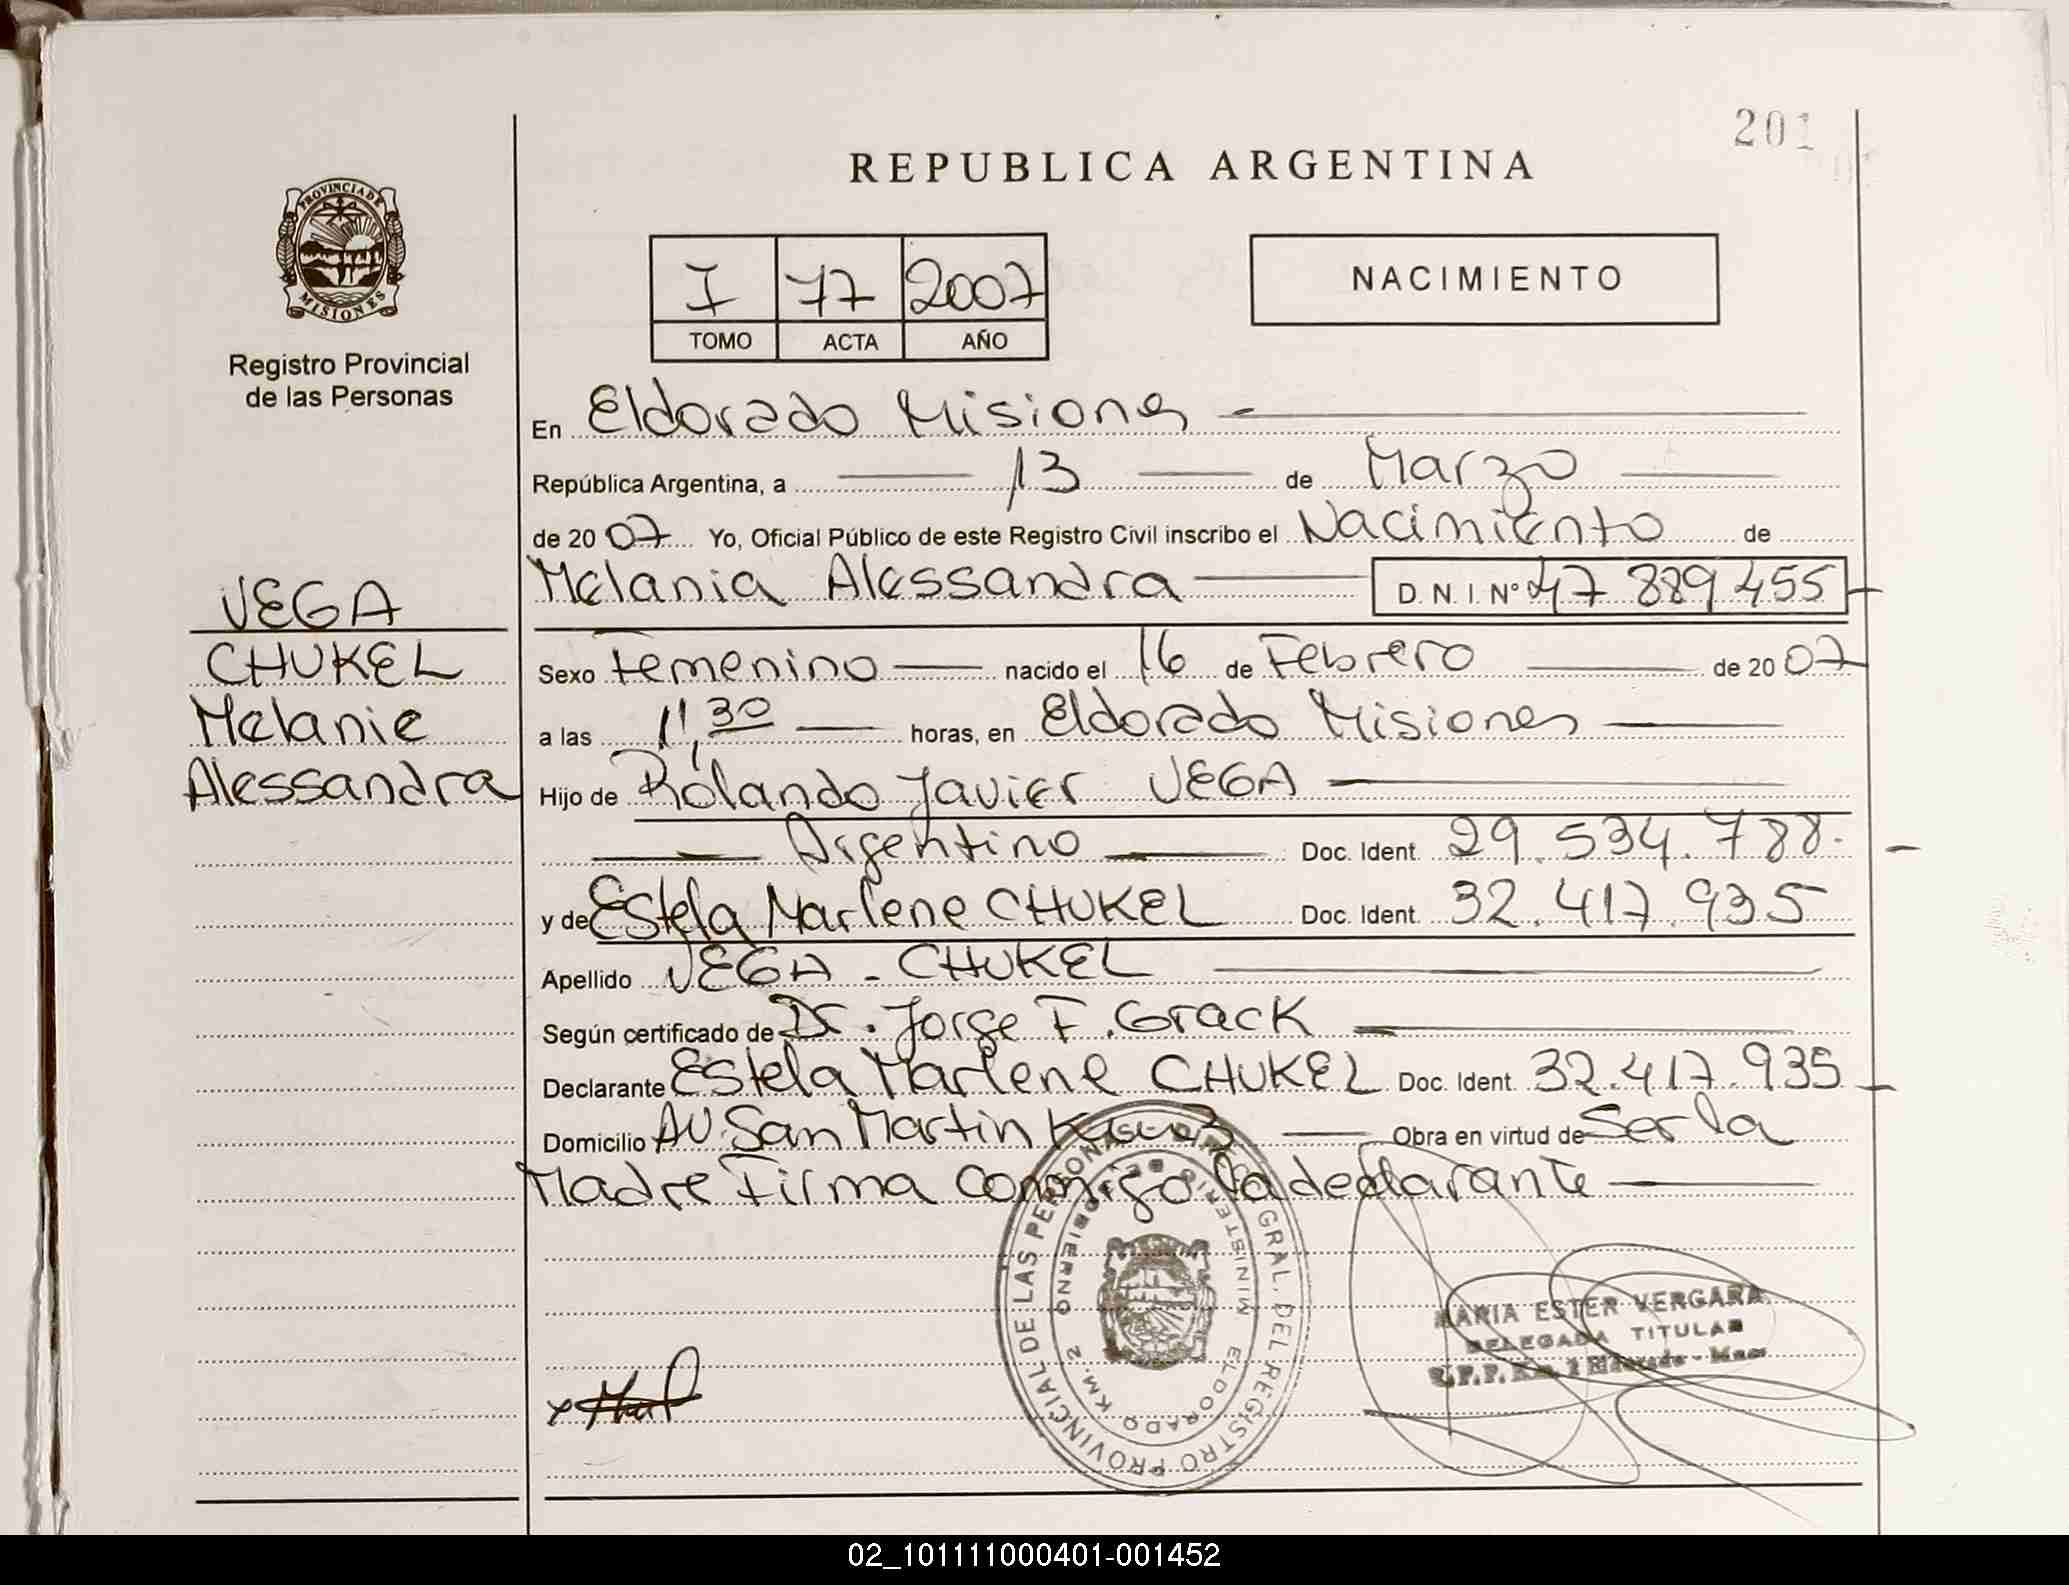 201
REPUBLICA ARGENTINA
PROVINCIA DE MISIONES
Registro Provincial
de las Personas
I 77 2007
TOMO ACTA AÑO
NACIMIENTO
En Eldorado Misiones
República Argentina, a 13 de Marzo
de 2007 Yo, Oficial Público de este Registro Civil inscribo el Nacimiento de
Melania Alessandra D.N.I. Nº 47 889 455
VEGA
CHUKEL
Melanie
Alessandra
Sexo Femenino nacido el 16 de Febrero de 2007
a las 11,30 horas, en Eldorado Misiones
Hijo de Rolando Javier VEGA
Argentino Doc. Ident. 29.534.788.
y de Estela Marlene CHUKEL Doc. Ident. 32.417.935
Apellido VEGA - CHUKEL
Según certificado de Dr. Jorge F. Grack
Declarante Estela Marlene CHUKEL Doc. Ident. 32.417.935
Domicilio AV. San Martin Obra en virtud de Ser la
Madre Firma conmigo la declarante
DIREC GRAL. DEL REGISTRO PROVINCIAL DE LAS PERSONAS
MINISTERIO DE GOBIERNO
ELDORADO KM. 2
MARIA ESTER VERGARA
DELEGADA TITULAR
Eldorado - Mnes
02_101111000401-001452